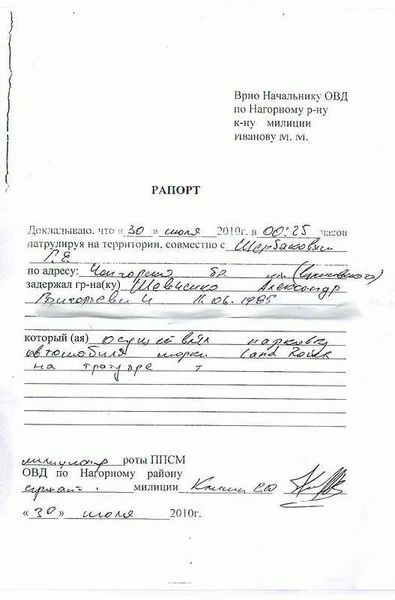 Врио Начальнику ОВД
по Нагорному р-ну
к-ну милиции
Иванову М. М.
РАПОРТ
Докладываю, что «30» июля 2010г. в 00:25 часов
патрулируя на территории, совместно с Щербаковым
Г.Е.
по адресу: Чонгарский бр.
задержал гр-на(ку) Шевченко Александр
11.06.1985
который (ая) осуществлял парковку
автомобиля марки Land Rover
на тротуаре
милиционер роты ППСМ
ОВД по Нагорному району
сержант милиции
«30» июля 2010г.